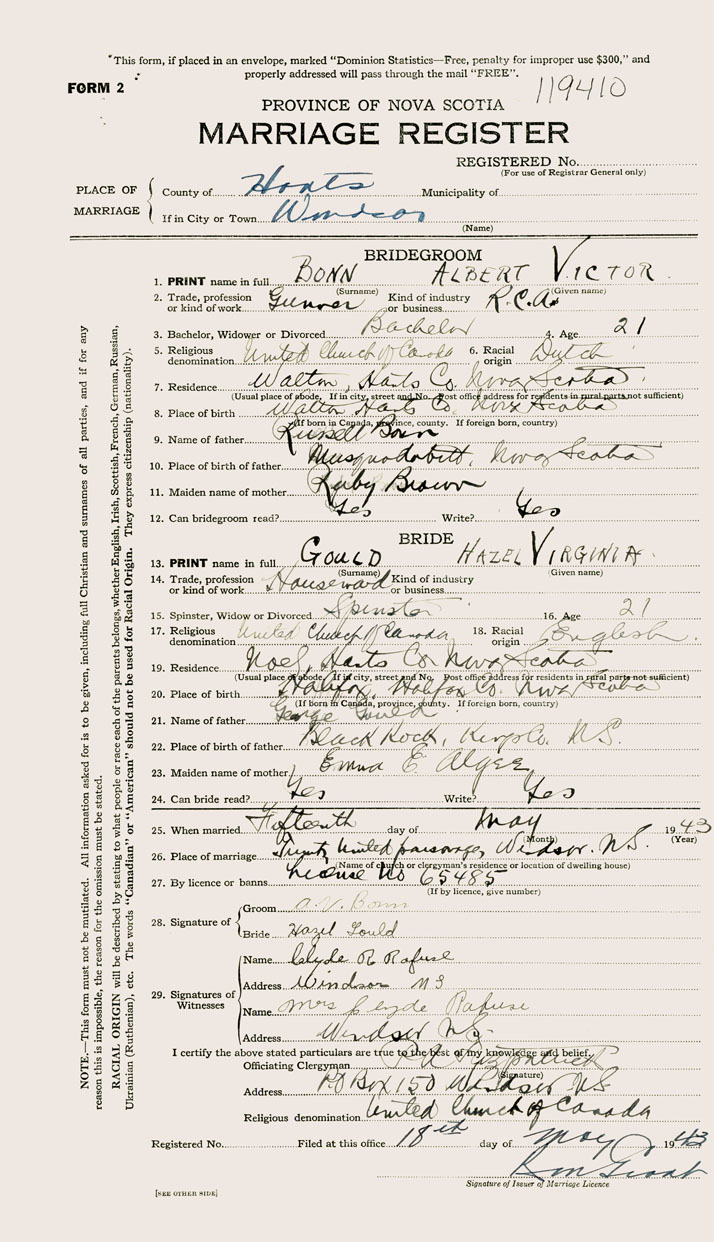 *This form, if placed in an envelope, marked "Dominion Statistics—Free, penalty for improper use $300," and
properly addressed will pass through the mail "FREE".
FORM 2
119410
PROVINCE OF NOVA SCOTIA
MARRIAGE REGISTER
REGISTERED No.
(For use of Registrar General only)
PLACE OF MARRIAGE
County of Hants Municipality of
If in City or Town Windsor
(Name)
BRIDEGROOM
1. PRINT name in full BONN ALBERT VICTOR
(Surname) (Given name)
2. Trade, profession or kind of work Gunner Kind of industry or business R.C.A.
3. Bachelor, Widower or Divorced Bachelor 4. Age 21
5. Religious denomination United Church of Canada 6. Racial origin Dutch
7. Residence Walton, Hants Co. Nova Scotia
(Usual place of abode. If in city, street and No. Post office address for residents in rural parts not sufficient)
8. Place of birth Walton Hants Co. Nova Scotia
(If born in Canada, province, county. If foreign born, country)
9. Name of father Russell Bonn
10. Place of birth of father Musquodoboit, Nova Scotia
11. Maiden name of mother Ruby Brown
12. Can bridegroom read? Yes Write? Yes
BRIDE
13. PRINT name in full GOULD HAZEL VIRGINIA
(Surname) (Given name)
14. Trade, profession or kind of work Kind of industry or business
15. Spinster, Widow or Divorced Spinster 16. Age 21
17. Religious denomination United Church of Canada 18. Racial origin English
19. Residence Noel, Hants Co. Nova Scotia
(Usual place of abode. If in city, street and No. Post office address for residents in rural parts not sufficient)
20. Place of birth Halifax, Halifax Co. Nova Scotia
(If born in Canada, province, county. If foreign born, country)
21. Name of father George Gould
22. Place of birth of father Black Rock, Kings Co. N.S.
23. Maiden name of mother Emma E. Algee
24. Can bride read? Yes Write? Yes
25. When married Fifteenth day of May 1943
(Month) (Year)
26. Place of marriage Trinity United parsonage, Windsor. N.S.
(Name of church or clergyman's residence or location of dwelling house)
27. By licence or banns License No 65485
(If by licence, give number)
28. Signature of
Groom A.V. Bonn
Bride Hazel Gould
29. Signatures of Witnesses
Name Clyde R Rafuse
Address Windsor NS
Name Mrs Clyde Rafuse
Address Windsor N.S.
I certify the above stated particulars are true to the best of my knowledge and belief.
Officiating Clergyman Fitzpatrick
(Signature)
Address PO Box 150 Windsor N.S.
Religious denomination United Church of Canada
Registered No. Filed at this office 18th day of May 1943
Signature of Issuer of Marriage Licence
[SEE OTHER SIDE]
NOTE.—This form must not be mutilated. All information asked for is to be given, including full Christian and surnames of all parties, and if for any
reason this is impossible, the reason for the omission must be stated.
RACIAL ORIGIN will be described by stating to what people or race each of the parents belongs, whether English, Irish, Scottish, French, German, Russian,
Ukrainian (Ruthenian), etc. The words "Canadian" or "American" should not be used for Racial Origin. They express citizenship (nationality).